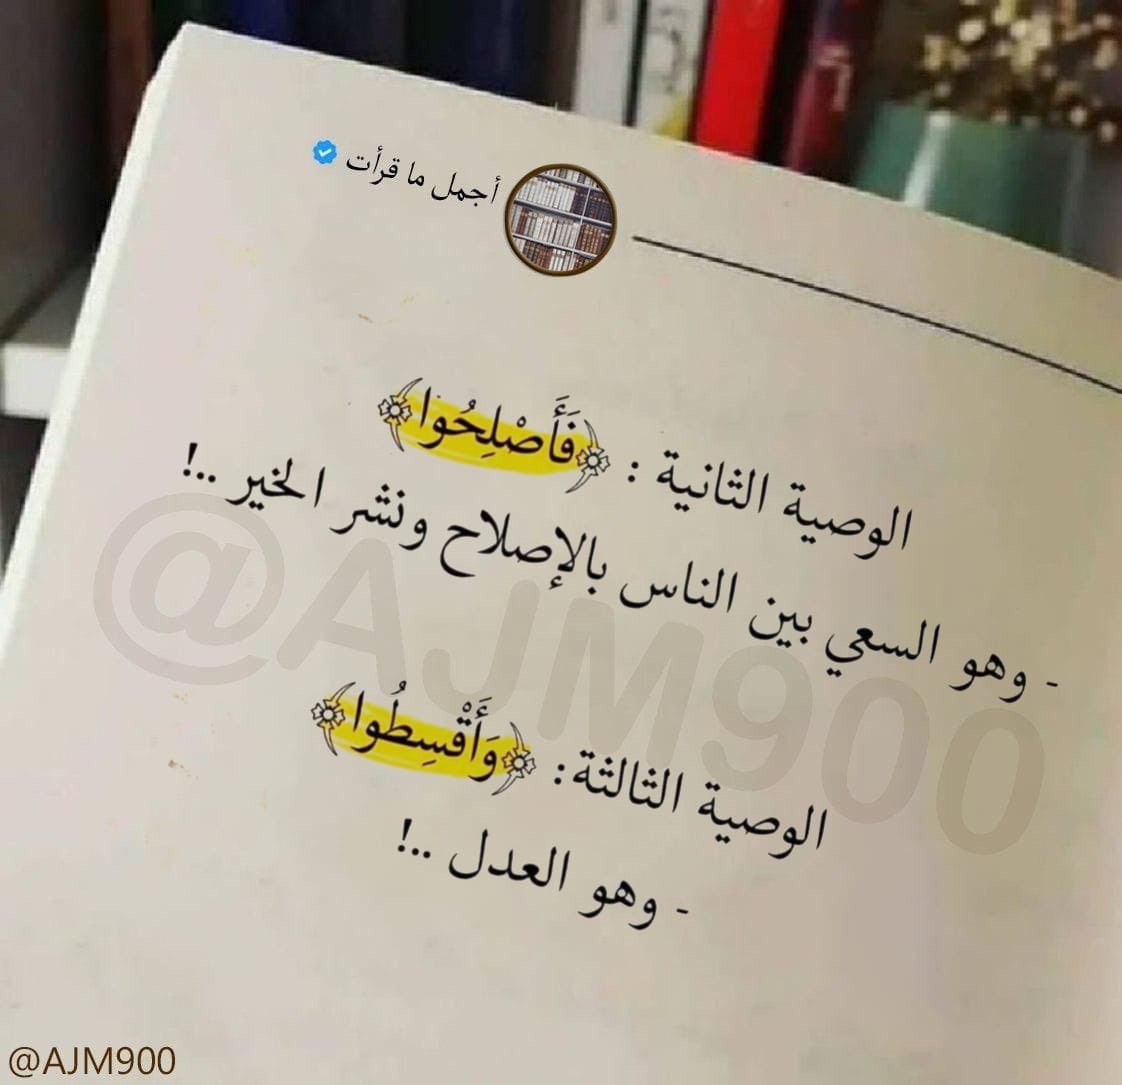 أجمل ما قرأت
الوصية الثانية : ﴿فَأَصْلِحُوا﴾
- وهو السعي بين الناس بالإصلاح ونشر الخير ..!
الوصية الثالثة: ﴿وَأَقْسِطُوا﴾
- وهو العدل ..!
@AJM900
@AJM900